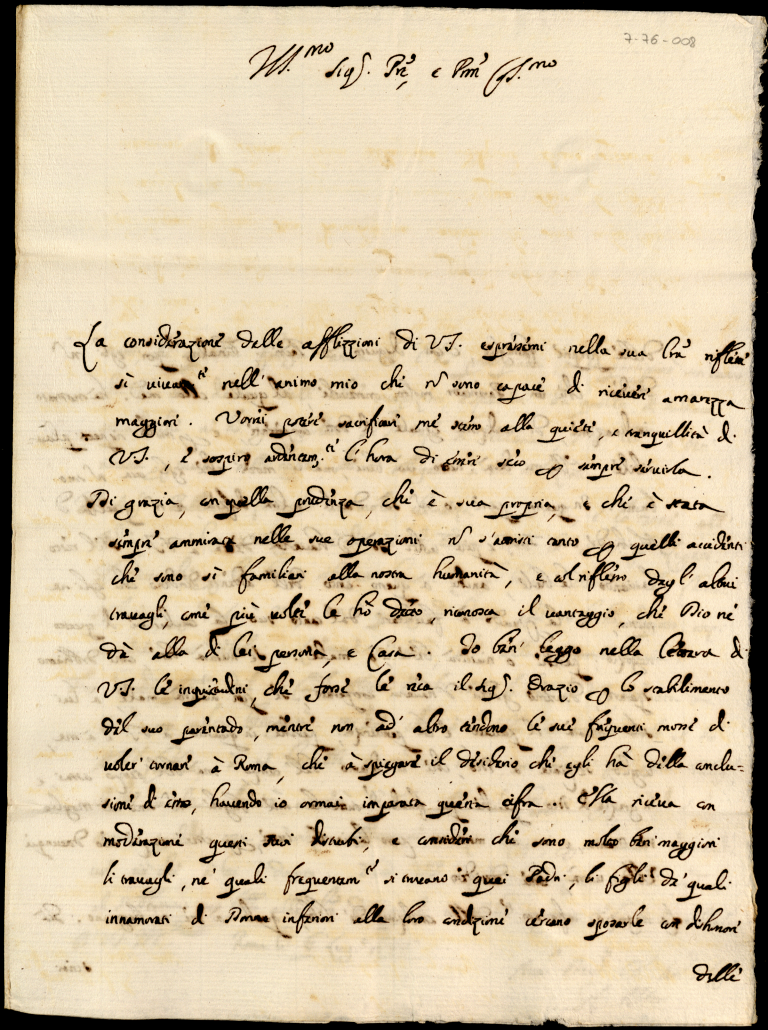 7-76-008
Ill.mo Sig.r Prē, e Prōn Col.mo
La considerazione delle afflizzioni di V.S. espressemi nella sua lrã riflette
sì vivam.te nell' animo mio che nō sono capace di ricevere amarezza
maggiore. Vorrei potere sacrificare me stesso alla quiete, e tranquillità di
V.S., e sospiro ardentem.te l'hora di essere seco p sempre servirla.
Di grazia, con quella prudenza, che è sua propria, e che è stata
sempre ammirata nelle sue operazioni nō s'attristi tanto p quelli accidenti
che sono sì familiari alla nostra humanità, e col riflesso degl'altrui
travagli, come più volte le hò detto, riconosca il vantaggio, che Dio ne
dà alla di lei persona, e Casa. Io ben leggo nella lettera di
V.S. le inquietudini, che forse le reca il Sig.r Orazio p lo stabilimento
del suo parentado, mentre non ad' altro tendono le sue frequenti mosse di
voler tornare à Roma, che à spiegare il desiderio che egli hà della conclu=
sione di esso, havendo io ormai imparata questa cifra. Ella riceva con
moderazione questi suoi disturbi, e consideri che sono molto ben maggiori
li travagli, ne' quali frequentem.te si trovano quei Padri, li figli de' quali
innamorati di Donne inferiori alla loro condizione cercano sposarle con dishonore
delle